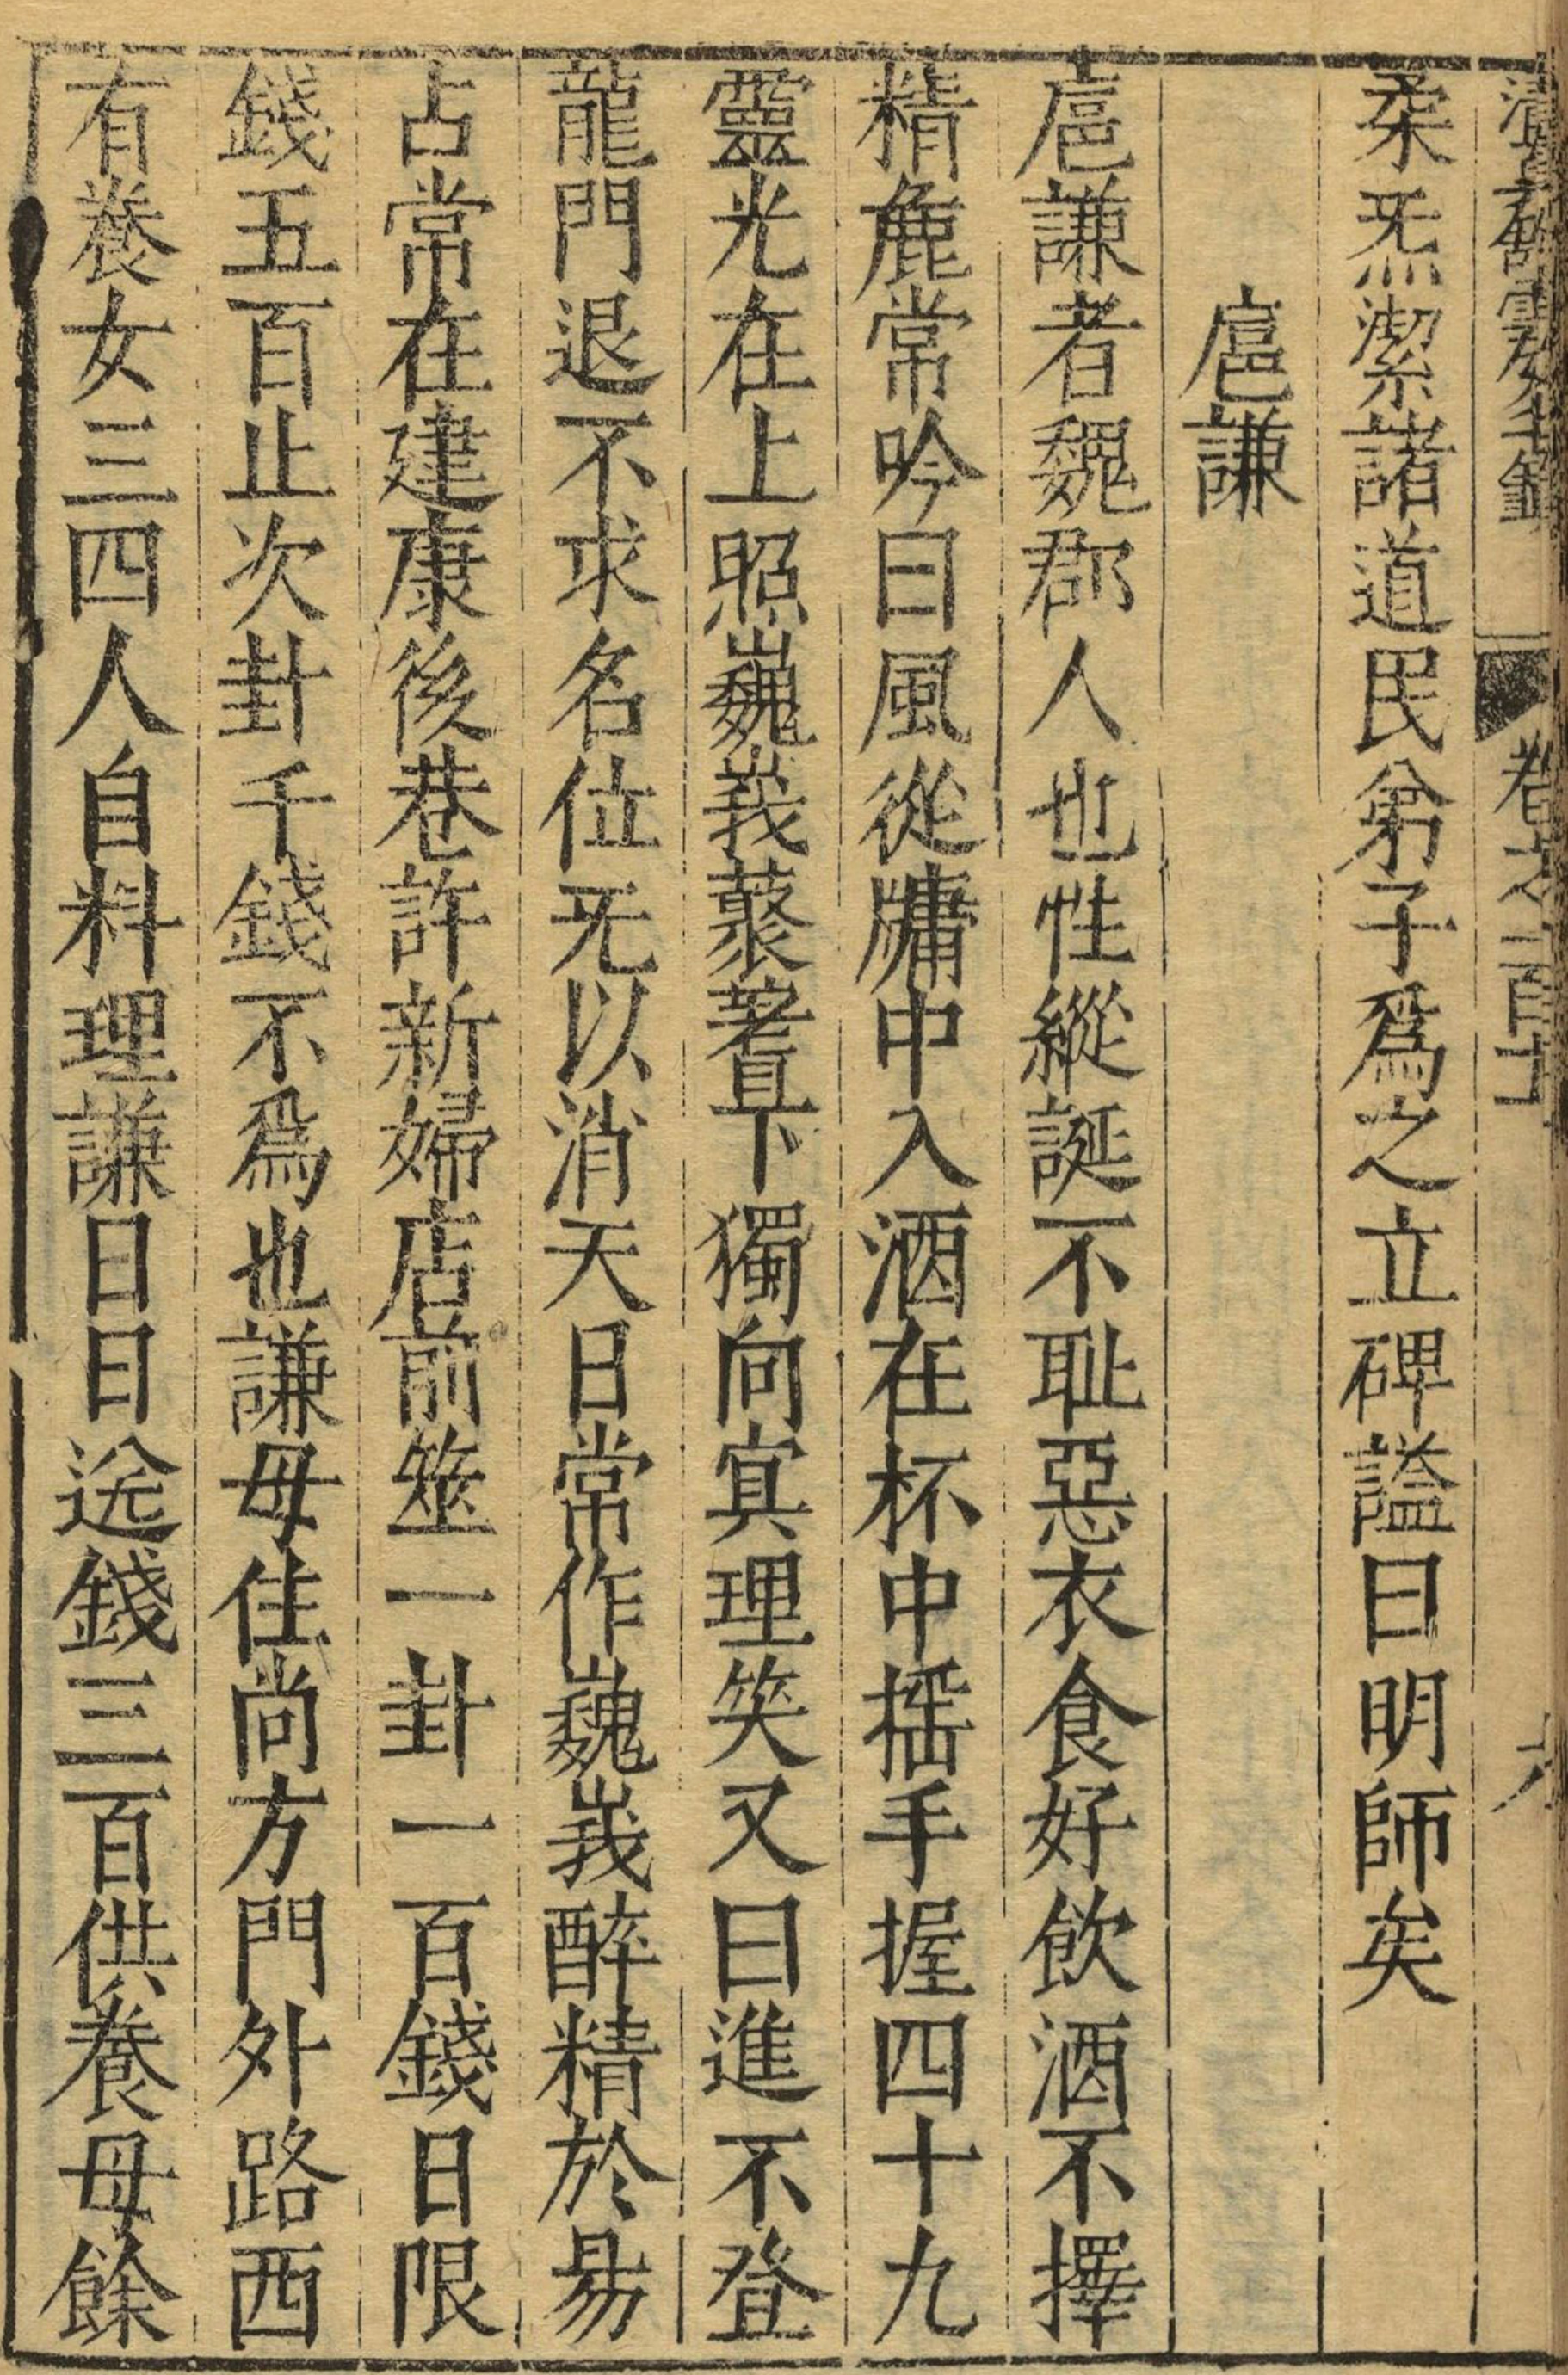 柔炁潔諸道民弟子爲之立碑謚曰明師矣
扈謙
扈謙者魏郡人也性縱誕不耻惡衣食好飲酒不擇
精麁常吟曰風從牗中入酒在杯中揺手握四十九
靈光在上照巍峩䕺蓍下獨向寘理笑又曰進不登
龍門退不求名位无以消天日常作巍峩醉精於易
占常在建康後巷許新婦店前筮一卦一百錢日限
錢五百止次卦千錢不爲也謙母住尚方門外路西
有養女三四人自料理謙日日送錢三百供養母餘